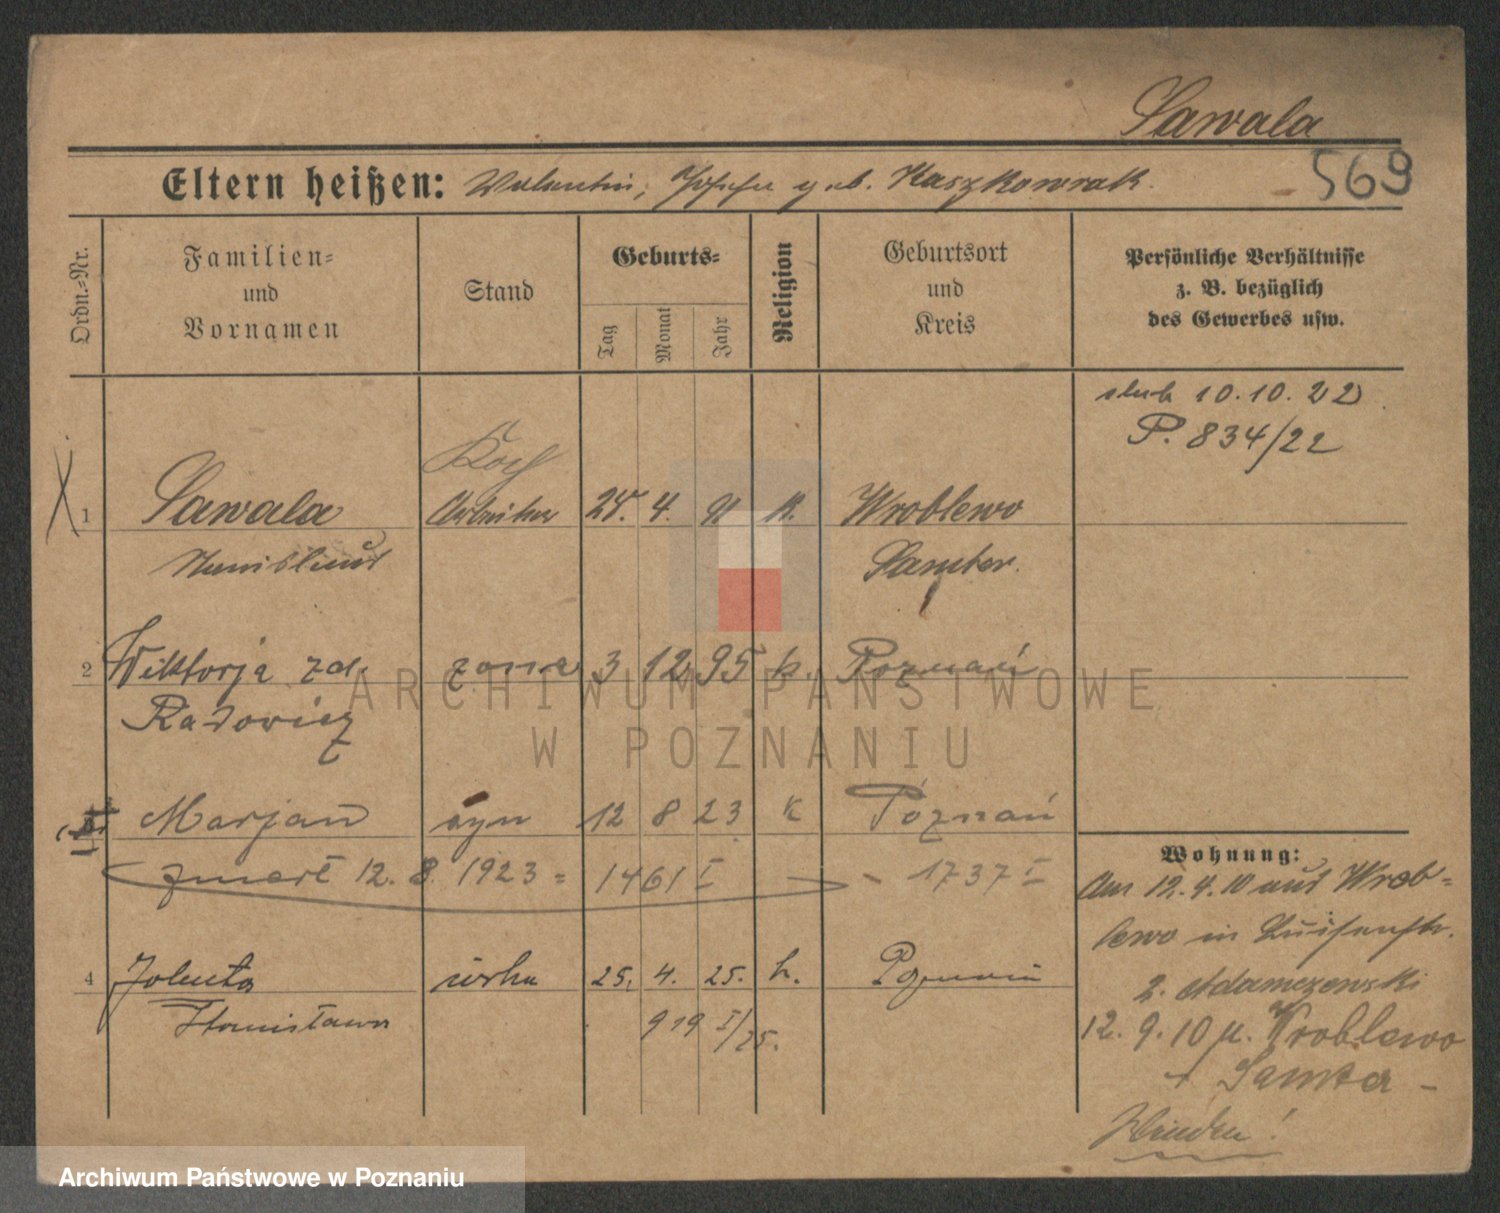 Sawala
569
Eltern heißen: Valentin, Josefa geb. Kaszkowiak.
Ordn.-Nr.
Familien- und Vornamen
Stand
Geburts-
Tag Monat Jahr
Religion
Geburtsort und Kreis
Persönliche Verhältnisse
z. B. bezüglich
des Gewerbes usw.
ślub 10.10.22
P. 834/22
Koch
1 Sawala Arbeiter 25. 4. 91 K. Wroblewo
Stanislaus Samter.
2 Wiktorja zd. żona 3 12 95 k. Poznań
Radowicz
Marjan syn 12 8 23 k Poznań
zmarł 12. 8. 1923 = 1461 I – 1737 I
4 Jolenta córka 25. 4. 25. k. Poznań
Stanisława 919 I/25.
Wohnung:
Am 12.4.10 aus Wrob-
lewo in Luisenstr.
2. Adamczewski
12. 9. 10 n. Wroblewo
Samter
ARCHIWUM PAŃSTWOWE
W POZNANIU
Archiwum Państwowe w Poznaniu